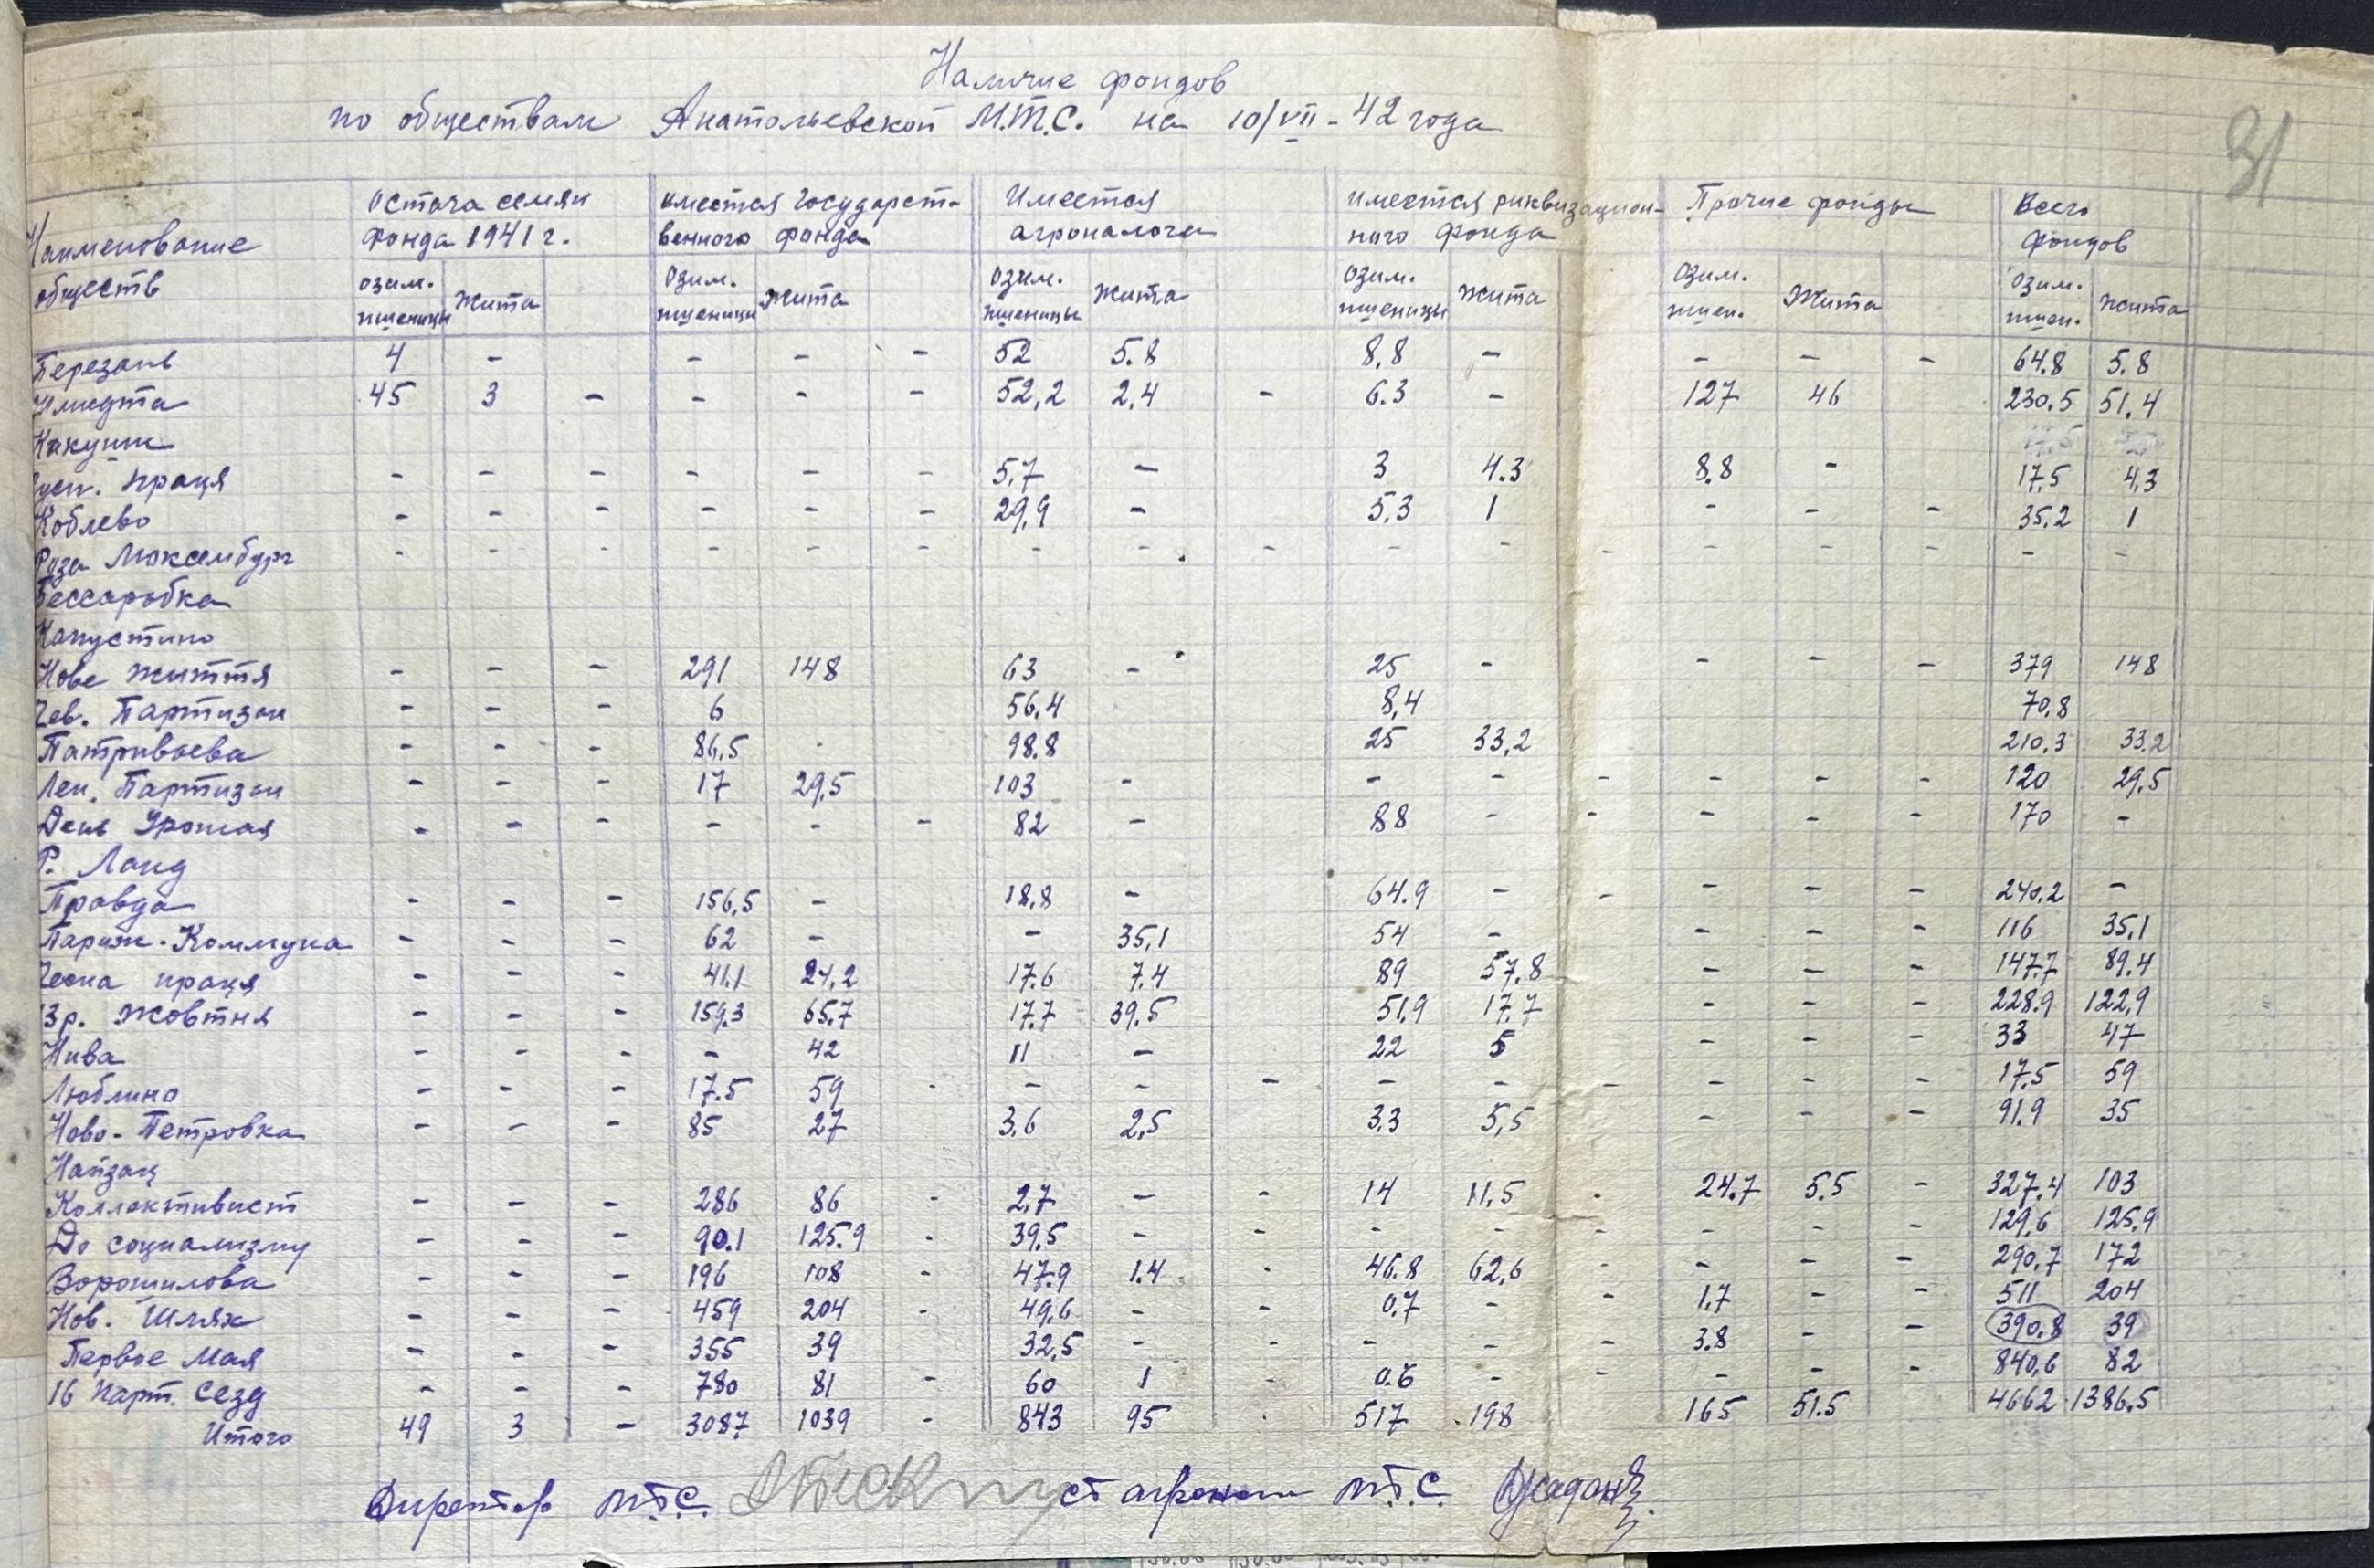 31
Наличие фондов
по обществам Анатольевской М.Т.С. на 10/VII - 42 года
Наименование обществ | Остача семян фонда 1941 г. | имеется государст- венного фонда | Имеется агроналога | имеется риквизацион- ного фонда | Прочие фонды | Всего фондов
озим. пшеницы | жита | | Озим. пшеници | жита | | Озим. пшеницы | жита | | Озим. пшеницы | жита | | Озим. пшен. | Жита | | Озим. пшен. | жита
Березань 4 - - - - 52 5.8 8,8 - - - - 64.8 5.8
Шмидта 45 3 - - - - 52,2 2,4 - 6.3 - 127 46 230.5 51,4
Какуши
праця - - - - - - 5,7 - 3 4.3 8.8 - 17,5 4,3
Коблево - - - - - - 29,9 - 5,3 1 - - - 35,2 1
Роза Люксембург - - - - - - - - - - - - - - - - -
Бессарабка
Капустино
Нове життя - - - 291 148 63 - 25 - - - - 379 148
Чев. Партизан - - - 6 56,4 8,4 70,8
Патриваева - - - 86,5 98.8 25 33,2 210,3 33,2
Лен. Партизан - - - 17 29,5 103 - - - - - - - 120 29,5
День Урожая - - - - - - 82 - 88 - - - - - 170 -
Р. Ланд
Правда - - - 156,5 - 18,8 - 64.9 - - - - - 240,2 -
Париж. Коммуна - - - 62 - - 35,1 54 - - - - 116 35,1
Чесна праця - - - 41.1 24,2 17.6 7.4 89 57,8 - - - 147.7 89.4
13 р. Жовтня - - - 159.3 65.7 17.7 39.5 51,9 17.7 - - - 228.9 122,9
Нива - - - - 42 11 - 22 5 - - - 33 47
Люблино - - - 17.5 59 - - - - - - - - - - 17,5 59
Ново-Петровка - - - 85 27 3,6 2,5 3.3 5,5 - - - 91.9 35
Найзац
Коллективист - - - 286 86 - 2,7 - - 14 11,5 - 24.7 5.5 - 327,4 103
До социализму - - - 90.1 125.9 - 39,5 - - - - - - - - 129,6 125,9
Ворошилова - - - 196 108 - 47.9 1.4 - 46.8 62,6 - - - - 290,7 172
Нов. Шлях - - - 459 204 - 49,6 - - 0.7 - - 1,7 - - 511 204
Первое Мая - - - 355 39 32,5 - - - - - 3.8 - - 390,8 39
16 Парт. сезд - - - 780 81 - 60 1 - 0.6 - - - - - 840,6 82
Итого 49 3 - 3087 1039 - 843 95 - 517 198 165 51.5 4662 1386,5
Директор М.Т.С. ст агроном М.Т.С.